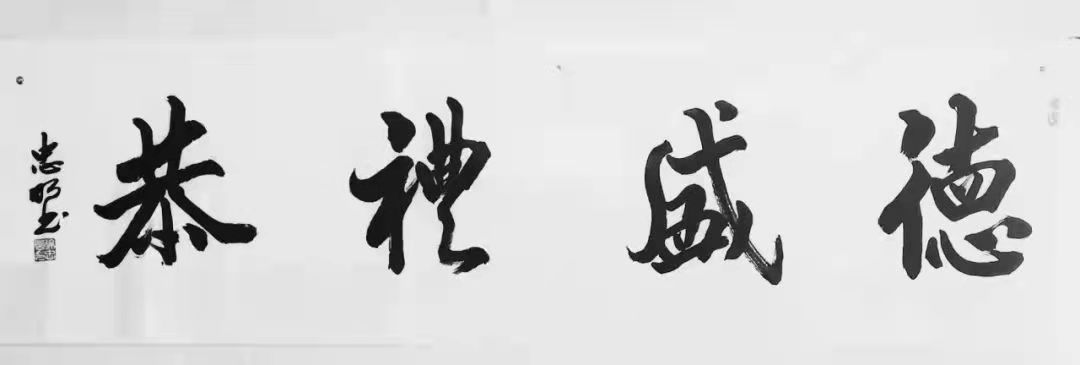 德盛禮恭
忠明书